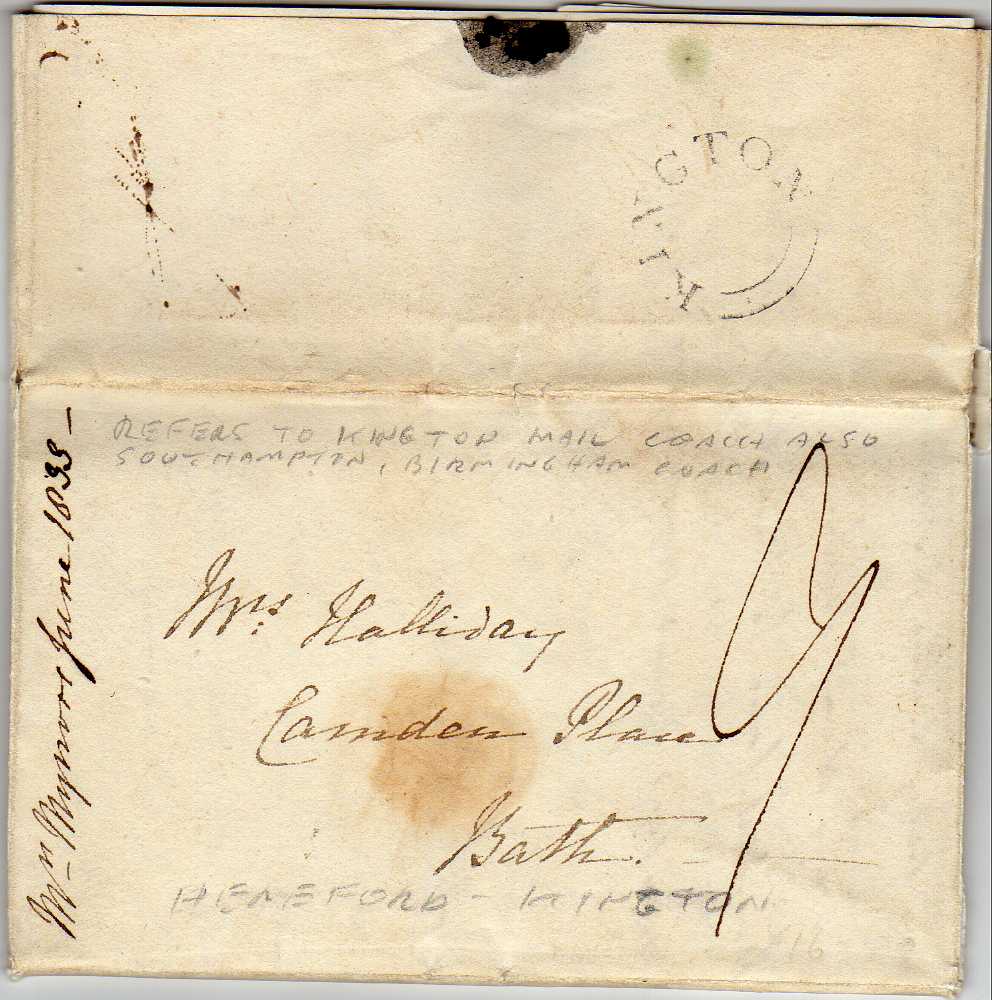 KINGTON
REFERS TO KINGTON MAIL COACH ALSO
SOUTHAMPTON, BIRMINGHAM COACH
Mrs. Halliday
Camden Place
Bath.
9
HEREFORD - KINGTON
16
Wm Mynors June 1835 -